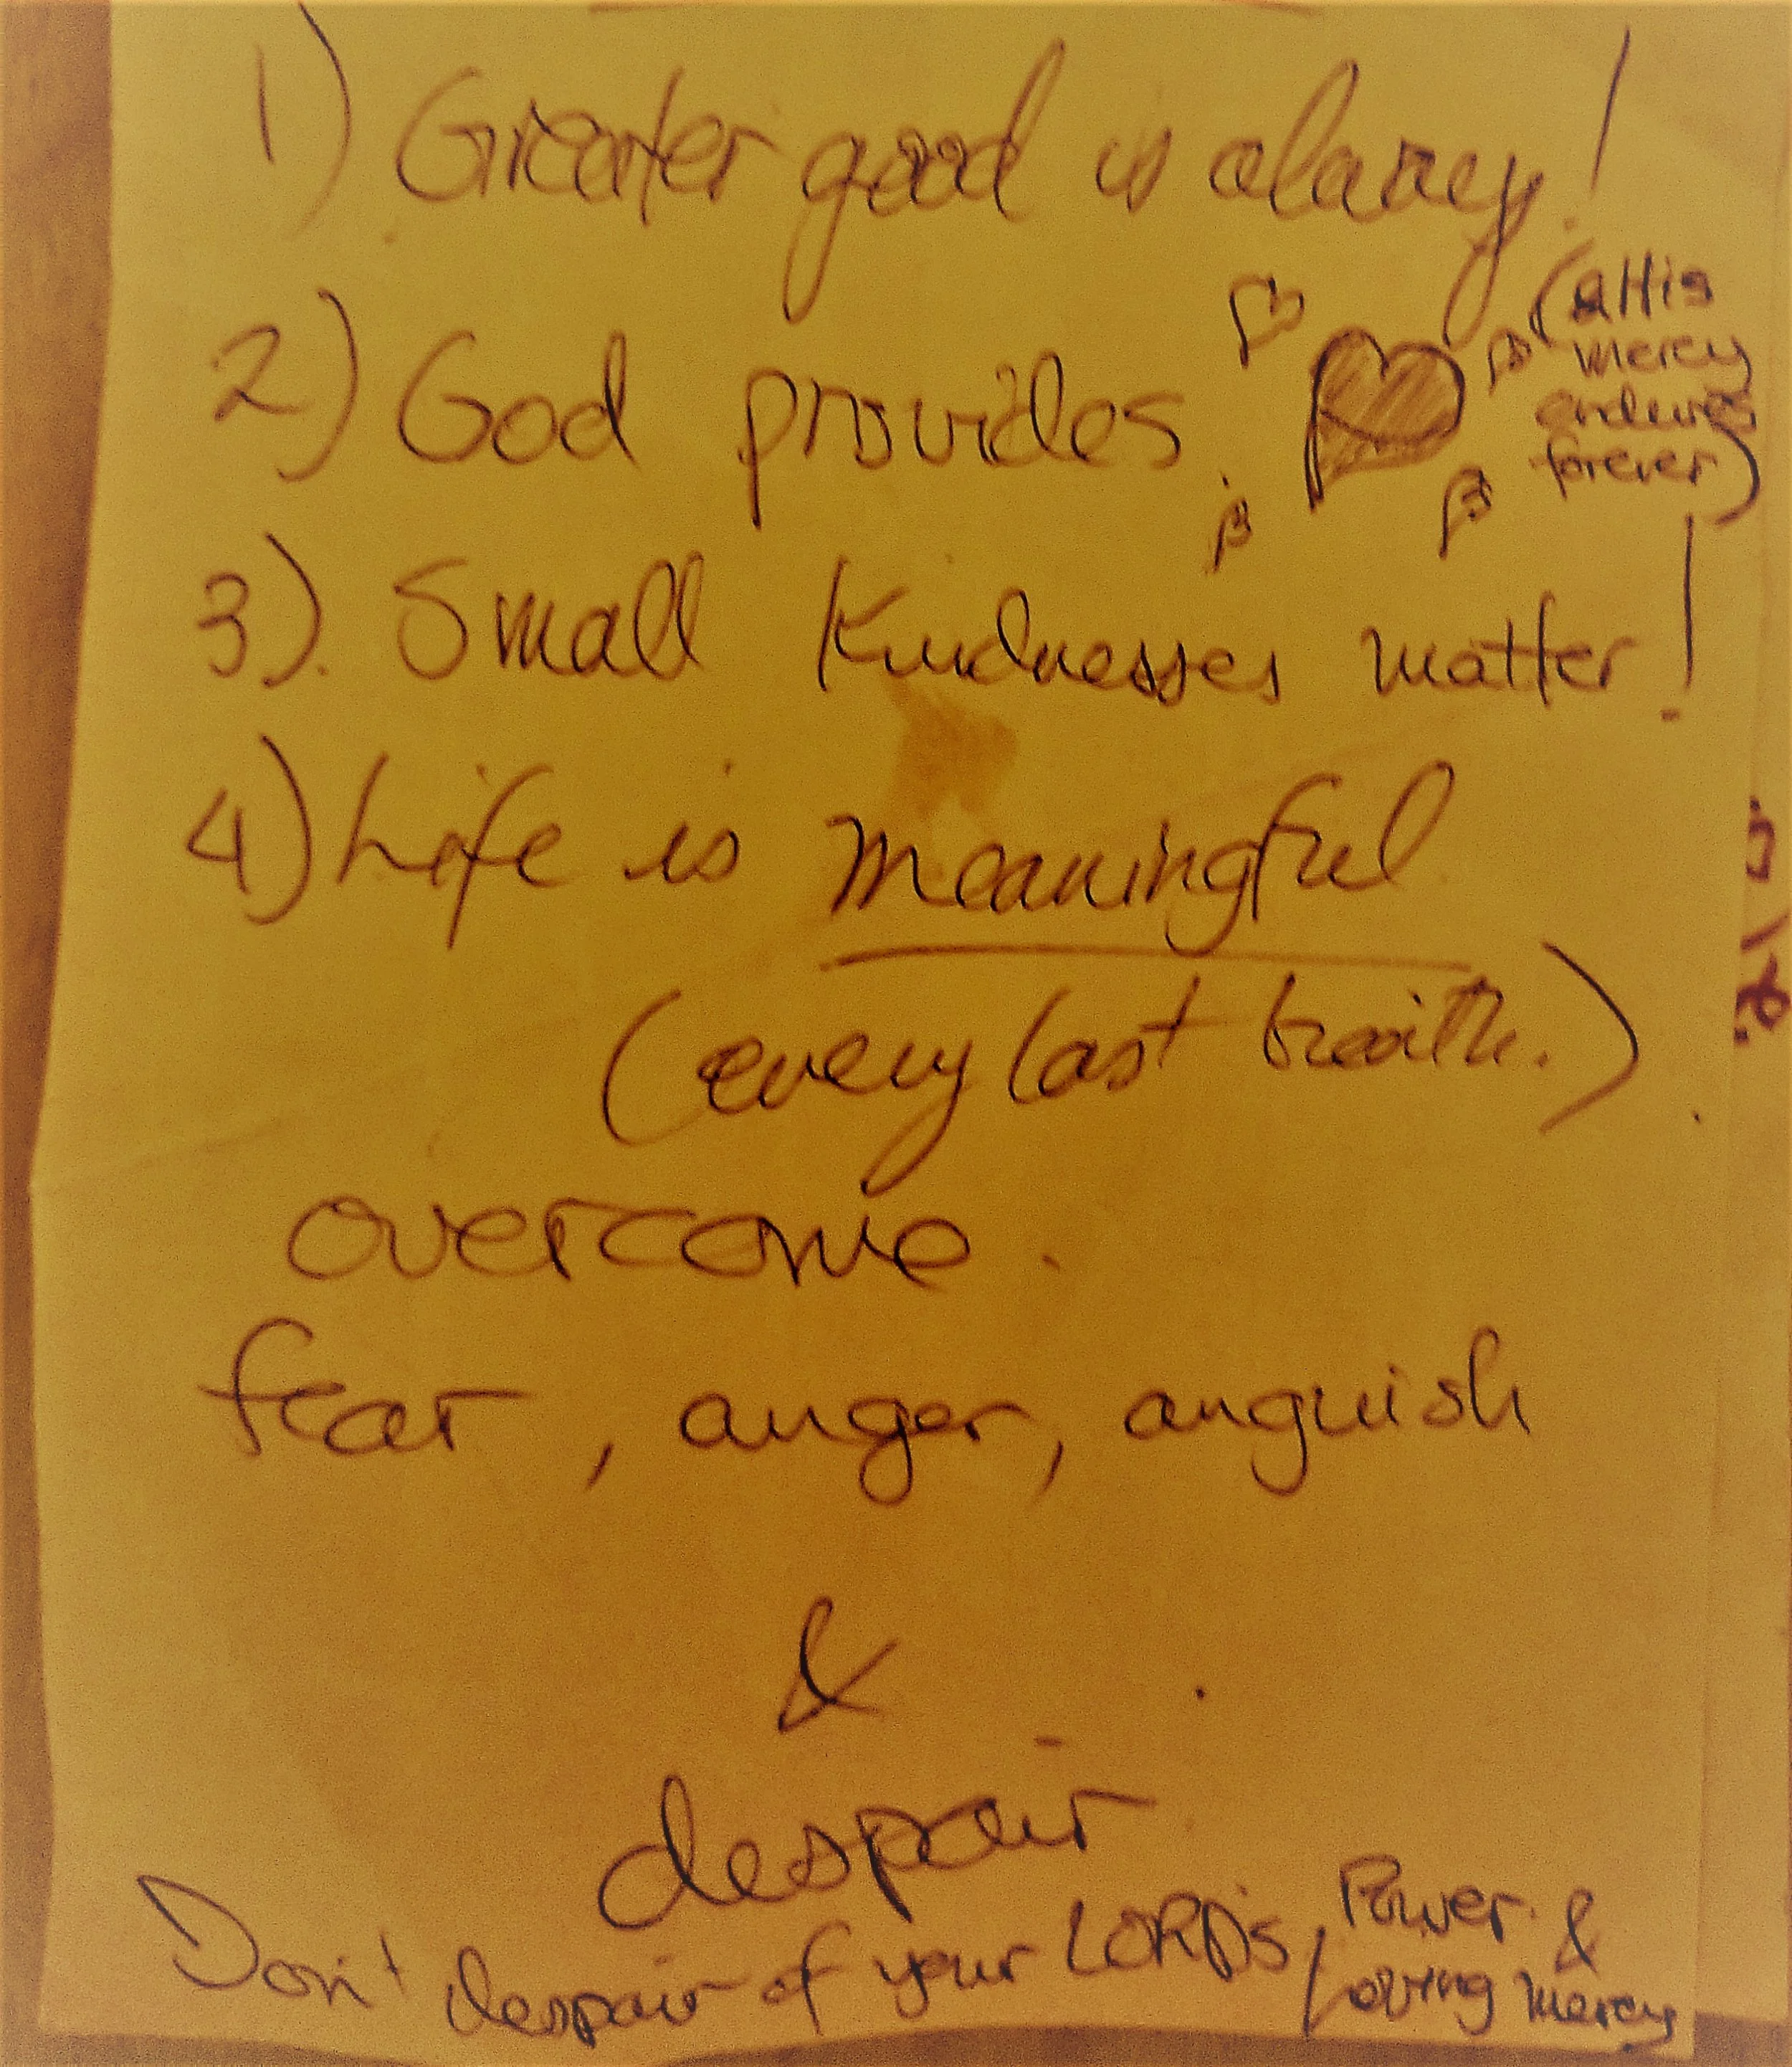 1) Greater good is always!
2) God provides.
(& His
mercy
endures
forever)
3). Small Kindnesses matter!
4) Life is meaningful
(every last breath.)
overcome.
fear, anger, anguish
&
despair
Don't despair of your LORD's Power &
Loving mercy